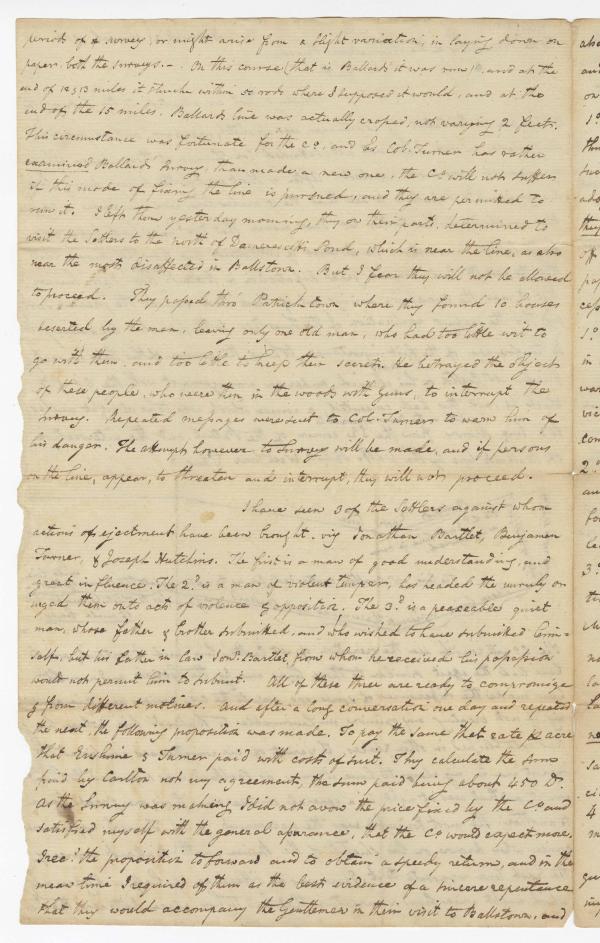 periods of surveys, or might arise from a slight variation, in laying down on
paper, both the surveys. — On this course (that is Ballards it was run and at the
end of 12 miles it struck within 50 rods where I supposed it would, and at the
end of the 15 miles. Ballards line was actually crossed, not varying 2 feet.
This circumstance was fortunate for the Co. and as Col. Turner has rather
examined Ballards Survey, than made a new one, the Co. will not suffer
if this mode of fixing the line is pursued, and they are permitted to
run it. I left them yesterday morning, they on their part, determined to
visit the Settlers to the north of Damerescotti Pond, which is near the line, as also
near the most disaffected in Ballstown. But I fear they will not be allowed
to proceed. They passed thro Patricktown where they found 10 houses
deserted by the men, leaving only one old man, who had too little wit to
go with them, and too little to keep their secrets. He betrayed the object
of these people, who were then in the woods with Guns, to interrupt the
Survey. Repeated messages were sent to Col. Turner to warn him of
his danger. The attempt however to Survey will be made, and if persons
on the line, appear, to threaten and interrupt, they will not proceed.
I have seen 3 of the Settlers against whom
actions of ejectment have been brought. viz Jonathan Bartlet, Benjamin
Turner, & Joseph Hutchins. The first is a man of good understanding, and
great influence. The 2d. is a man of violent temper, has headed the unruly or
urged them onto acts of violence & opposition. The 3d. is a peaceable quiet
man, whose father & brother submitted, and who wished to have submitted him=
self, but his father in law Jona. Bartlet, from whom he received his possession
would not permit him to submit. All of these three are ready to compromise
& from different motives. And after a long conversation one day and repeated
the next, the following proposition was made. To pay the same that rate pr acre
that Erskine & Turner paid with costs of suit. They calculate the sum
paid by Carlton not my agreement, the sum paid being about 450 Ds.
As the Survey was making I did not avow the price fixed by the Co. and
satisfied myself with the general assurance, that the Co. would expect more.
I recd. the proposition to forward and to obtain a speedy return, and in the
mean time I required of them as the best evidence of a sincere repentance
that they would accompany the Gentlemen in their visit to Ballstown, and